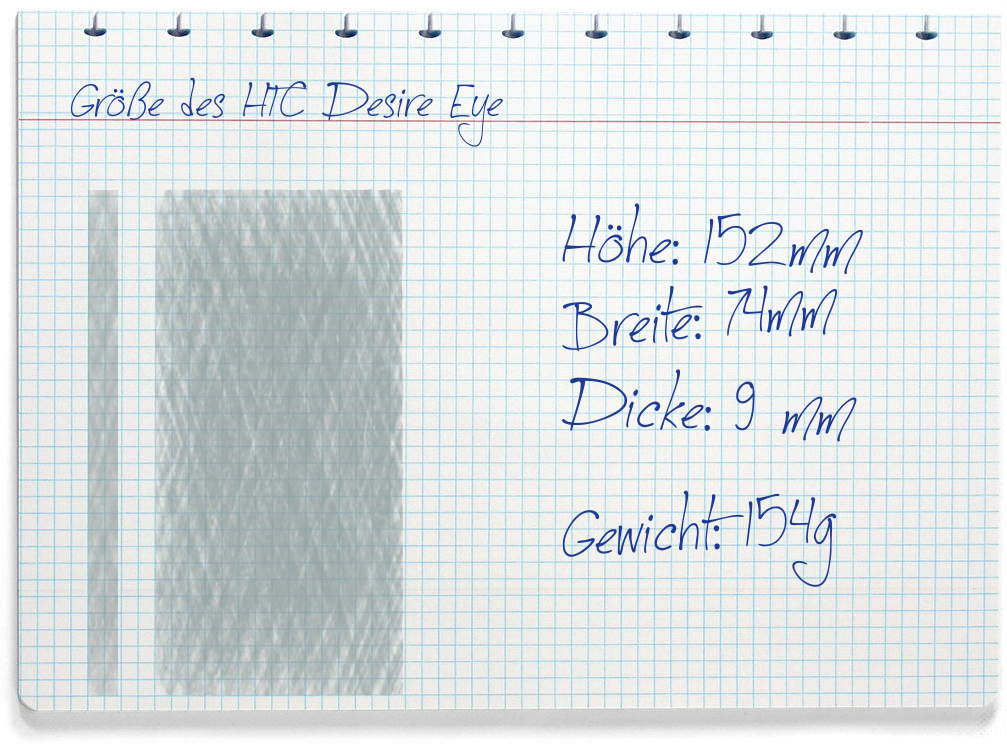 Größe des HTC Desire Eye
Höhe: 152mm
Breite: 74mm
Dicke: 9 mm
Gewicht: 154g